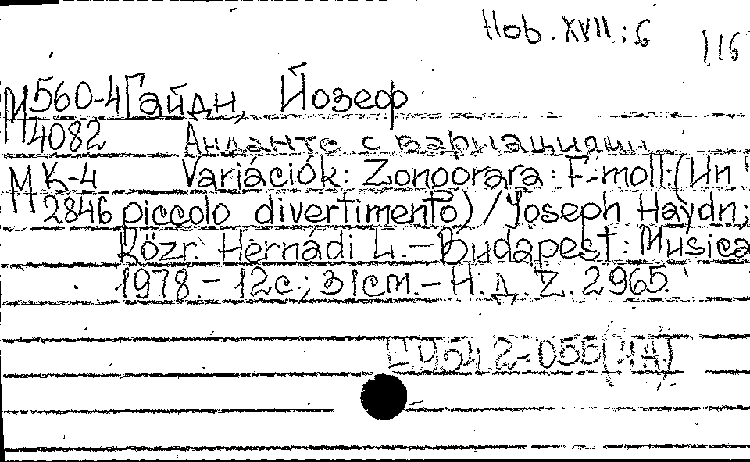 Hob. XVII:6 116
М560-4 Гайдн, Йозеф
4082 Анданте с вариациями
М К-4 Variációk: Zongorara: F-moll: (Un
2846 piccolo divertimento) / Joseph Haydn;
Közr. Hernádi L. – Budapest: Musica
1978. – 12с.; 31см. – Н.д. Z. 2965.